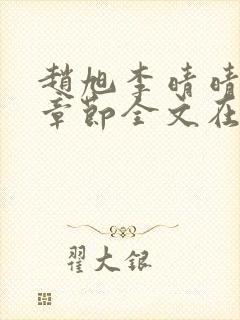 趙旭李晴晴
章節全文在
翟大銀